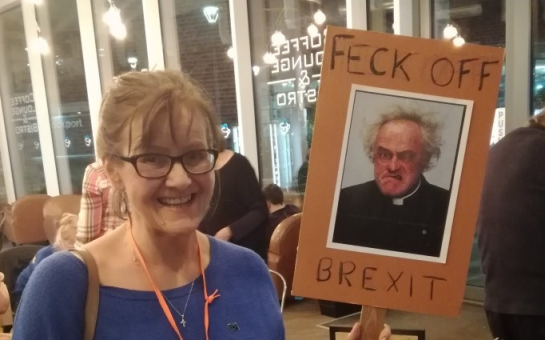 COFFEE
LOUNGE
&
BISTRO
FECK OFF
BREXIT